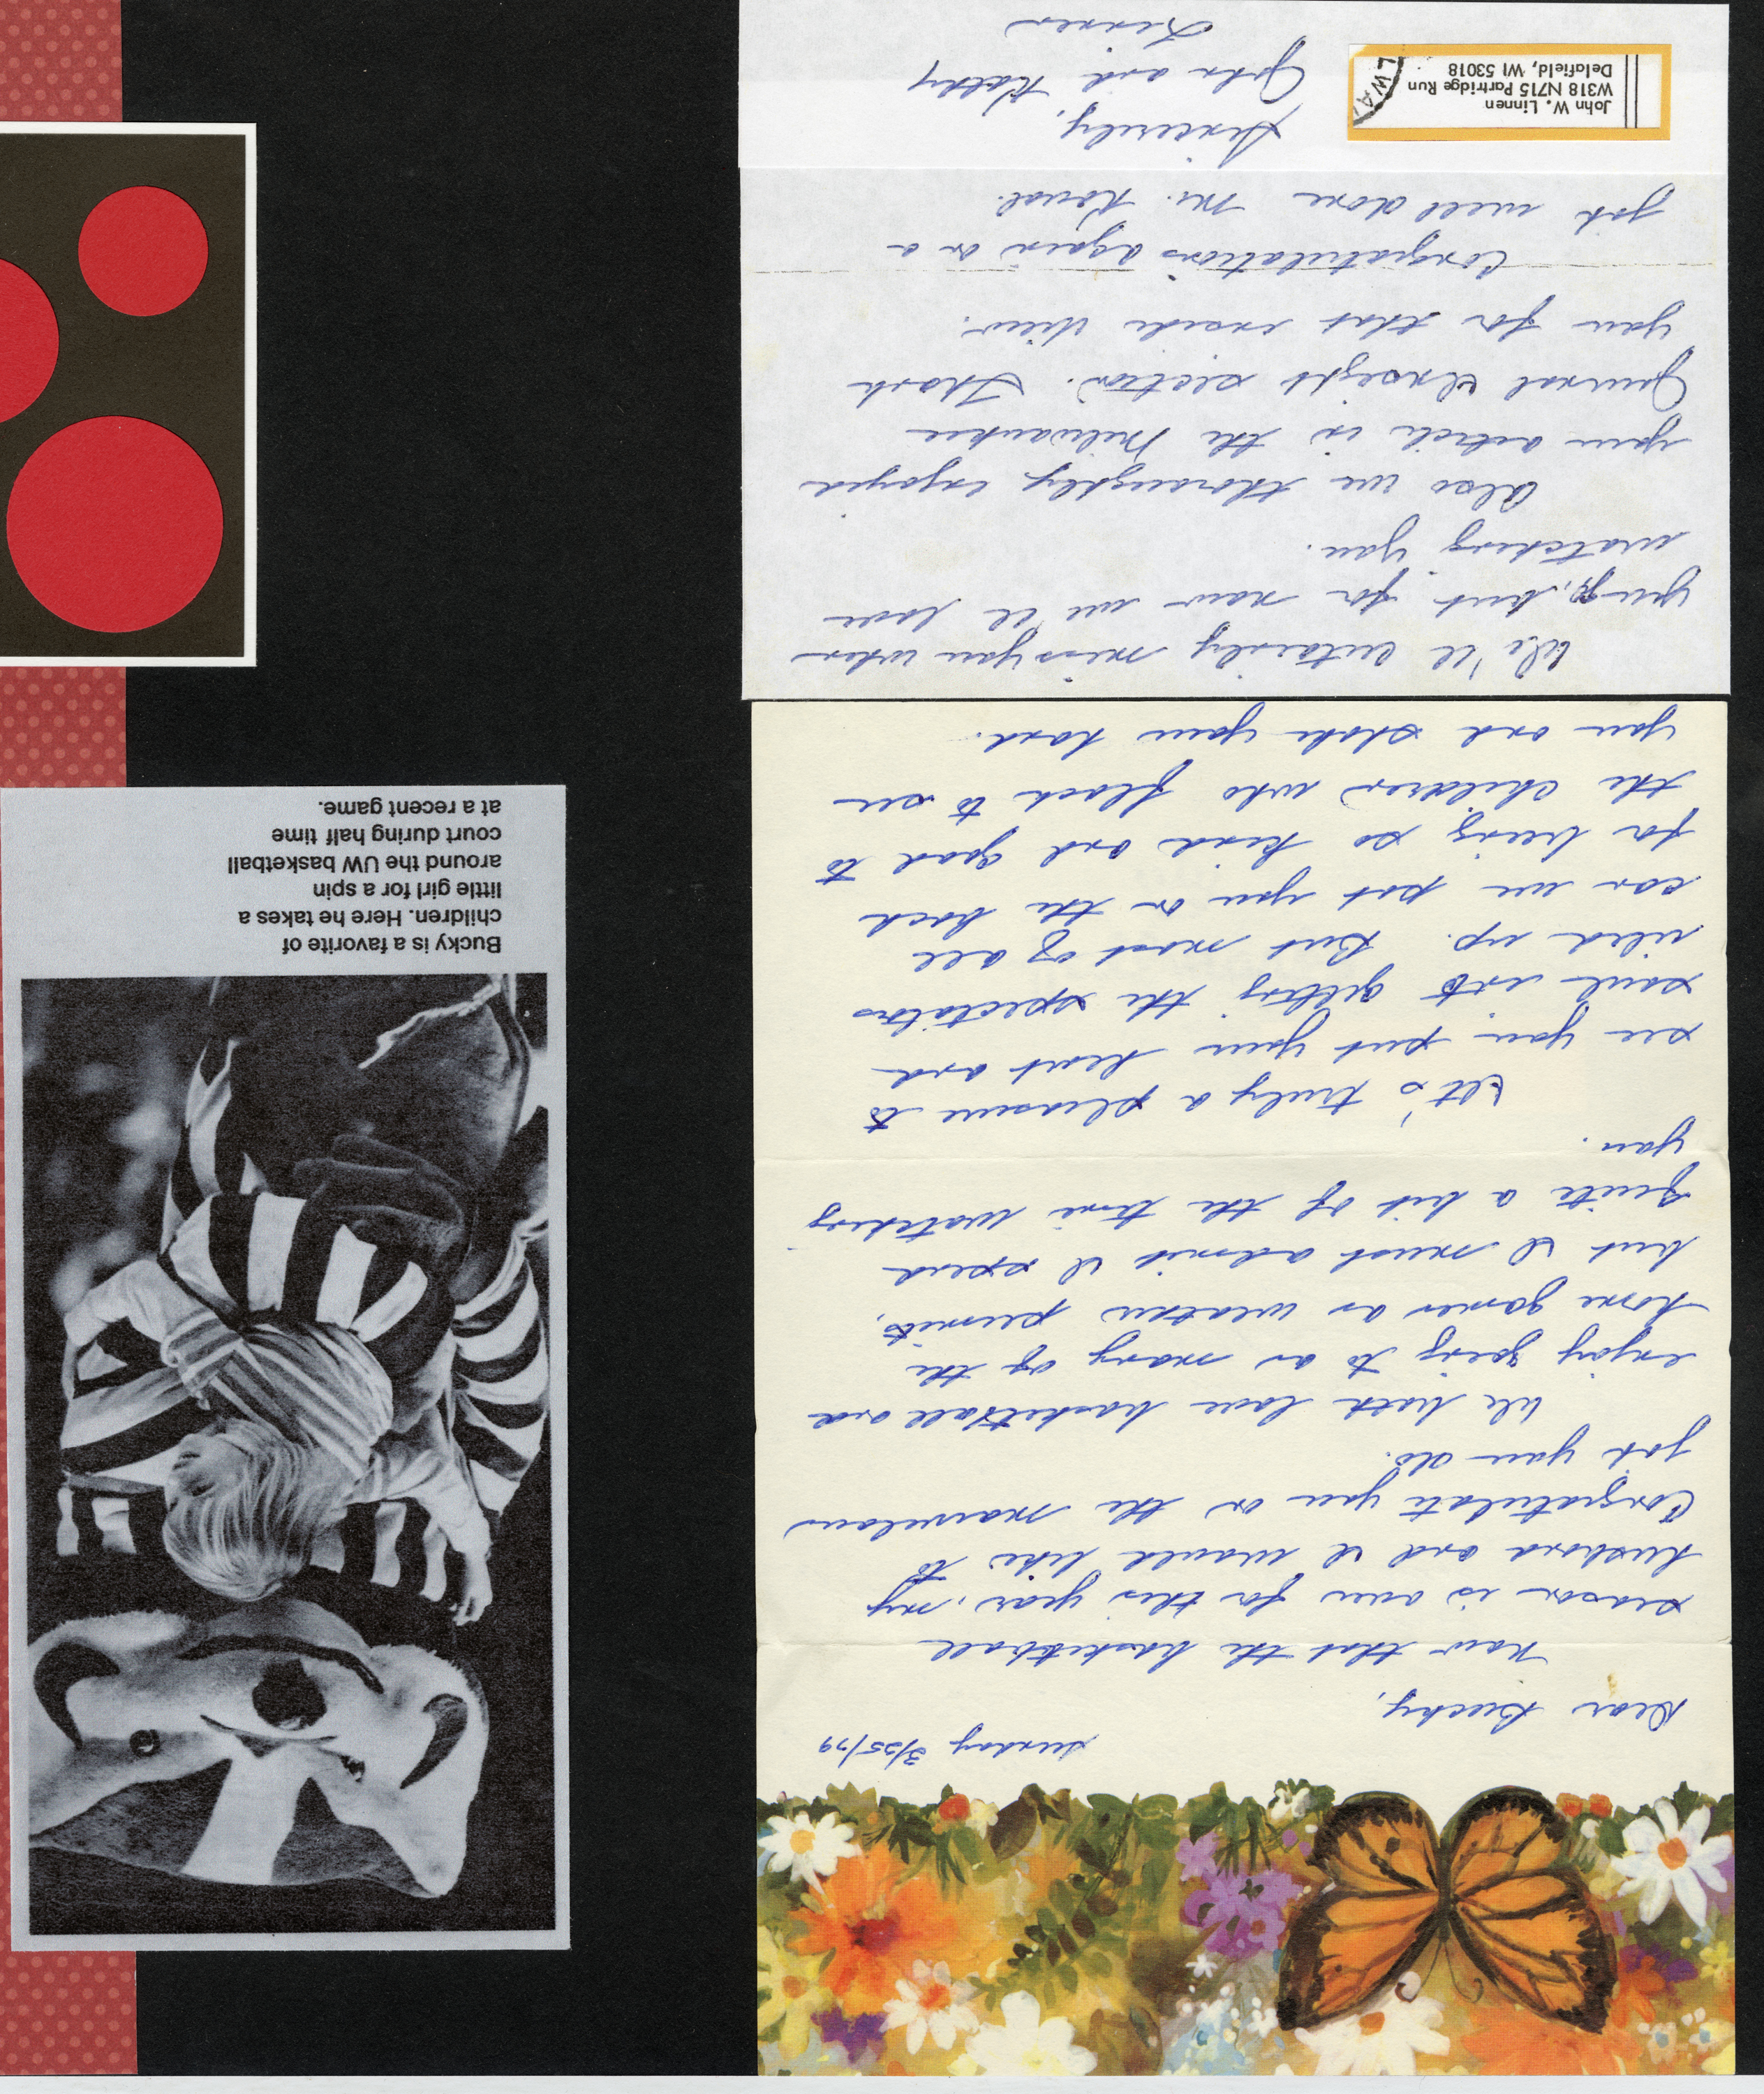 Sunday 3/25/79
Dear Bucky,
Now that the basketball
season is over for this year, my
husband and I would like to
Congratulate you on the marvelous
job you do.
We both love basketball and
enjoy going to as many of the
home games as weather permits,
but I must admit I spend
quite a bit of the time watching
you.
It's truly a pleasure to
see you put your heart and
soul into getting the spectators
riled up. But most of all
can we pat you on the back
for being so kind and good to
the children who flock to see
you and shake your hand.
We'll certainly miss you when
you go, but for now we'll love
watching you.
Also we thoroughly enjoyed
your article in the Milwaukee
Journal Insight section. Thank
you for that inside view.
Congratulations again on a
job well done Mr.
Sincerely,
John and Kathy
Linnen
John W. Linnen
W318 N715 Partridge Run
Delafield, WI 53018
LWA
Bucky is a favorite of
children. Here he takes a
little girl for a spin
around the UW basketball
court during half time
at a recent game.